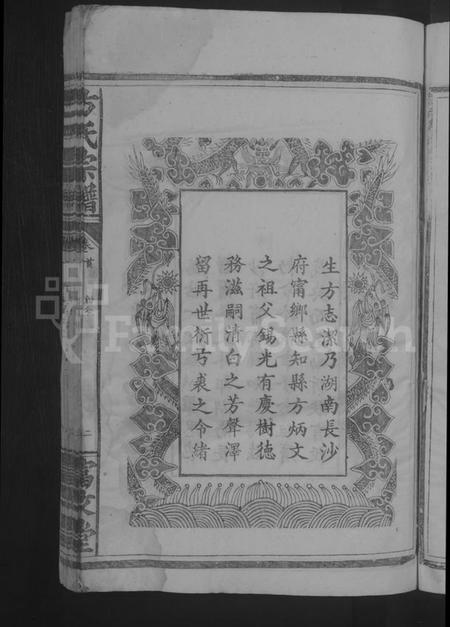 生方志潔乃湖南長沙
府甯鄉縣知縣方炳文
之祖父錫光有慶樹德
務滋嗣清白之芳聲澤
留再世衍弓裘之令緒
方氏宗譜
卷首
二
FamilySearch